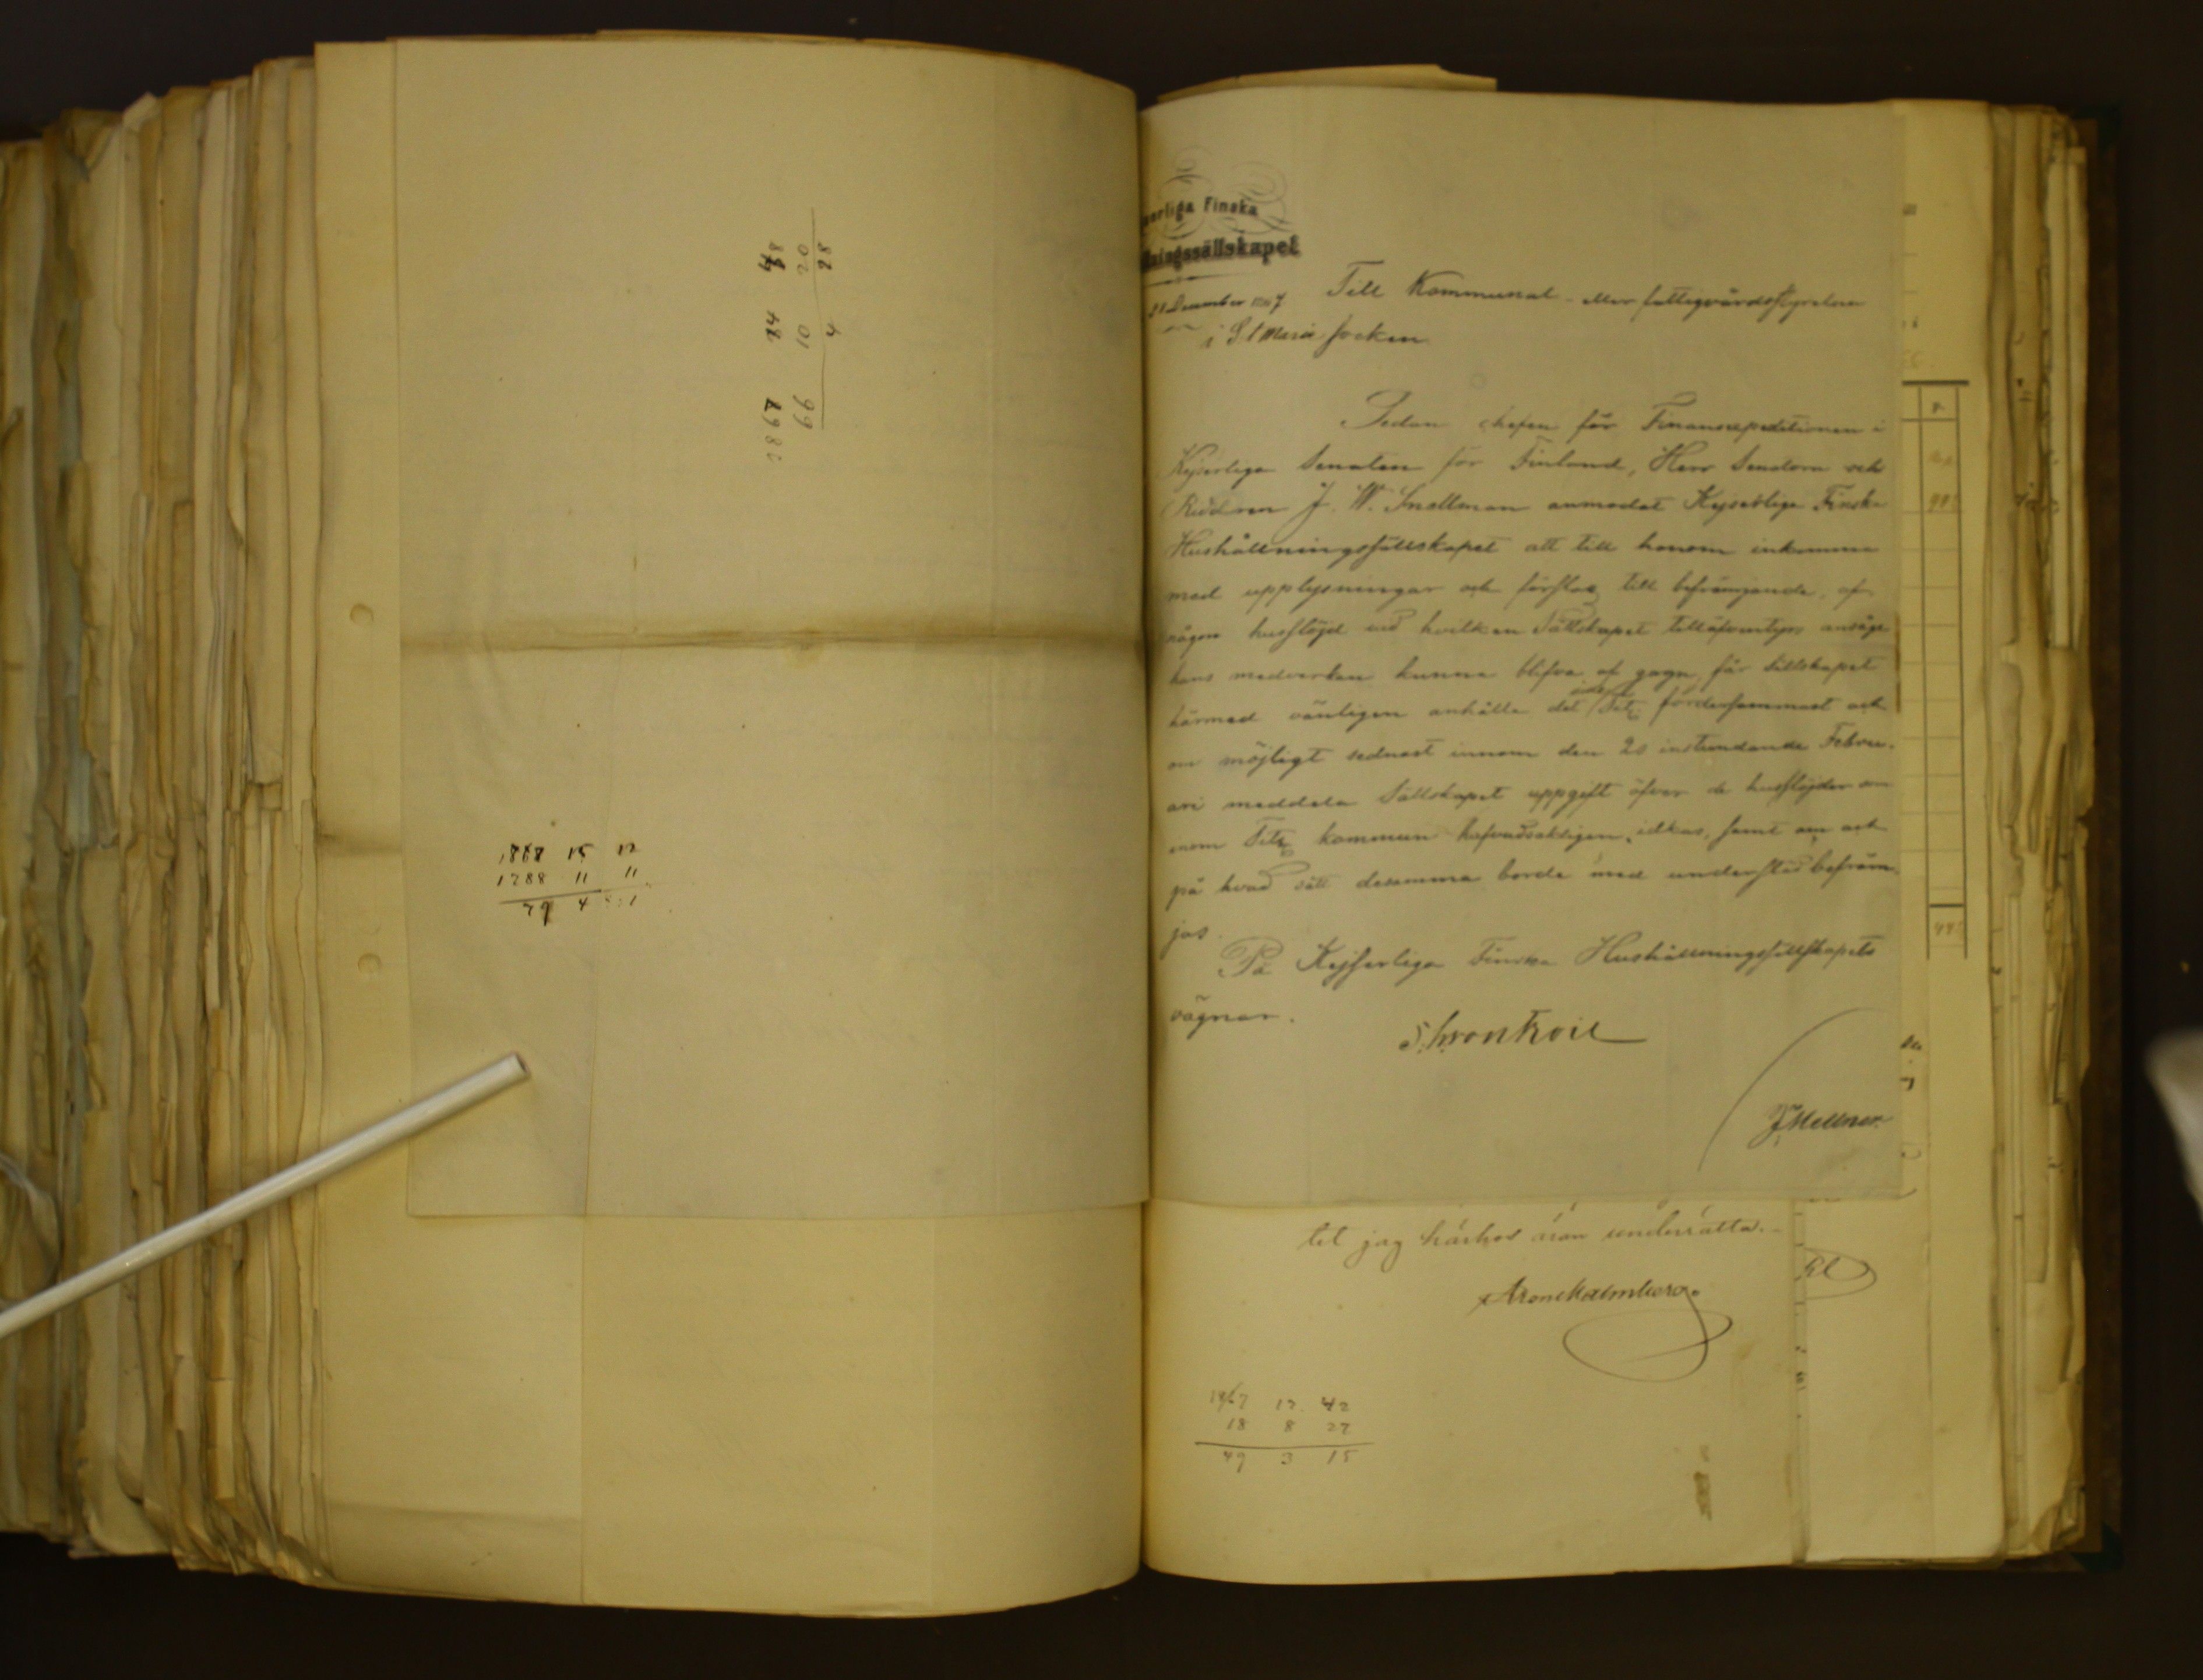 28
20 4
48 10
24 99
1868 15 12
1788 11 11
79 4 1
erliga Finska
ningssällskapet
December 1867
Till Kommunal- eller fattigvårdsstyrelsen
i S:t Marie Socken
Sedan chefen för Finansexpeditionen i
Kejserliga Senaten för Finland, Herr Senatorn och
Riddaren J. W. Snellman anmodat Kejserliga Finska
Hushållningssällskapet att till honom inkomma
med upplysningar och förslag till befrämjande af
någon husslöjd vid hvilken Sällskapet
hans medverkan kunna blifva af gagn, får Sällskapet
härmed vänligen anhålla det fördersammast och
om möjligt sednast innom den 20 instundande Febru-
ari meddela Sällskapet uppgift öfver de husslöjder som
inom kommun hufvudsakligen idkas, samt om och
på hvad sätt desamma borde med understöd befräm-
jas.
På Kejserliga Finska Hushållningssällskapets
vägnar.
S. W. von Troil
tet jag härhos äran underrätta.
1867 12 42
18 8 27
49 3 15